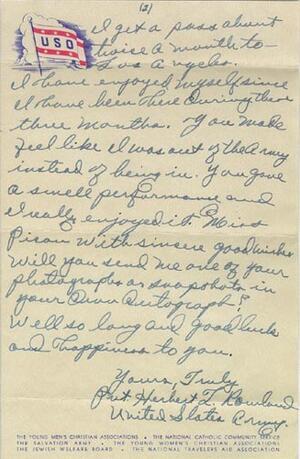 (2)
USO
I get a pass about
twice a month to
Los Angeles.
I have enjoyed myself since
I have been here during these
three months. You made
feel like I was out of the Army
instead of being in. You gave
a swell performance and
I really enjoyed it. Miss
Picon with sincere good wishes
Will you send me one of your
photographs or snapshots in
your Own Autograph?
Well so long and good luck
and happiness to you.
Yours, Truly
Pvt Herbert L. Rowland
United States Army.
THE YOUNG MEN'S CHRISTIAN ASSOCIATIONS • THE NATIONAL CATHOLIC COMMUNITY SERVICE
THE SALVATION ARMY • THE YOUNG WOMEN'S CHRISTIAN ASSOCIATIONS
THE JEWISH WELFARE BOARD • THE NATIONAL TRAVELERS AID ASSOCIATION